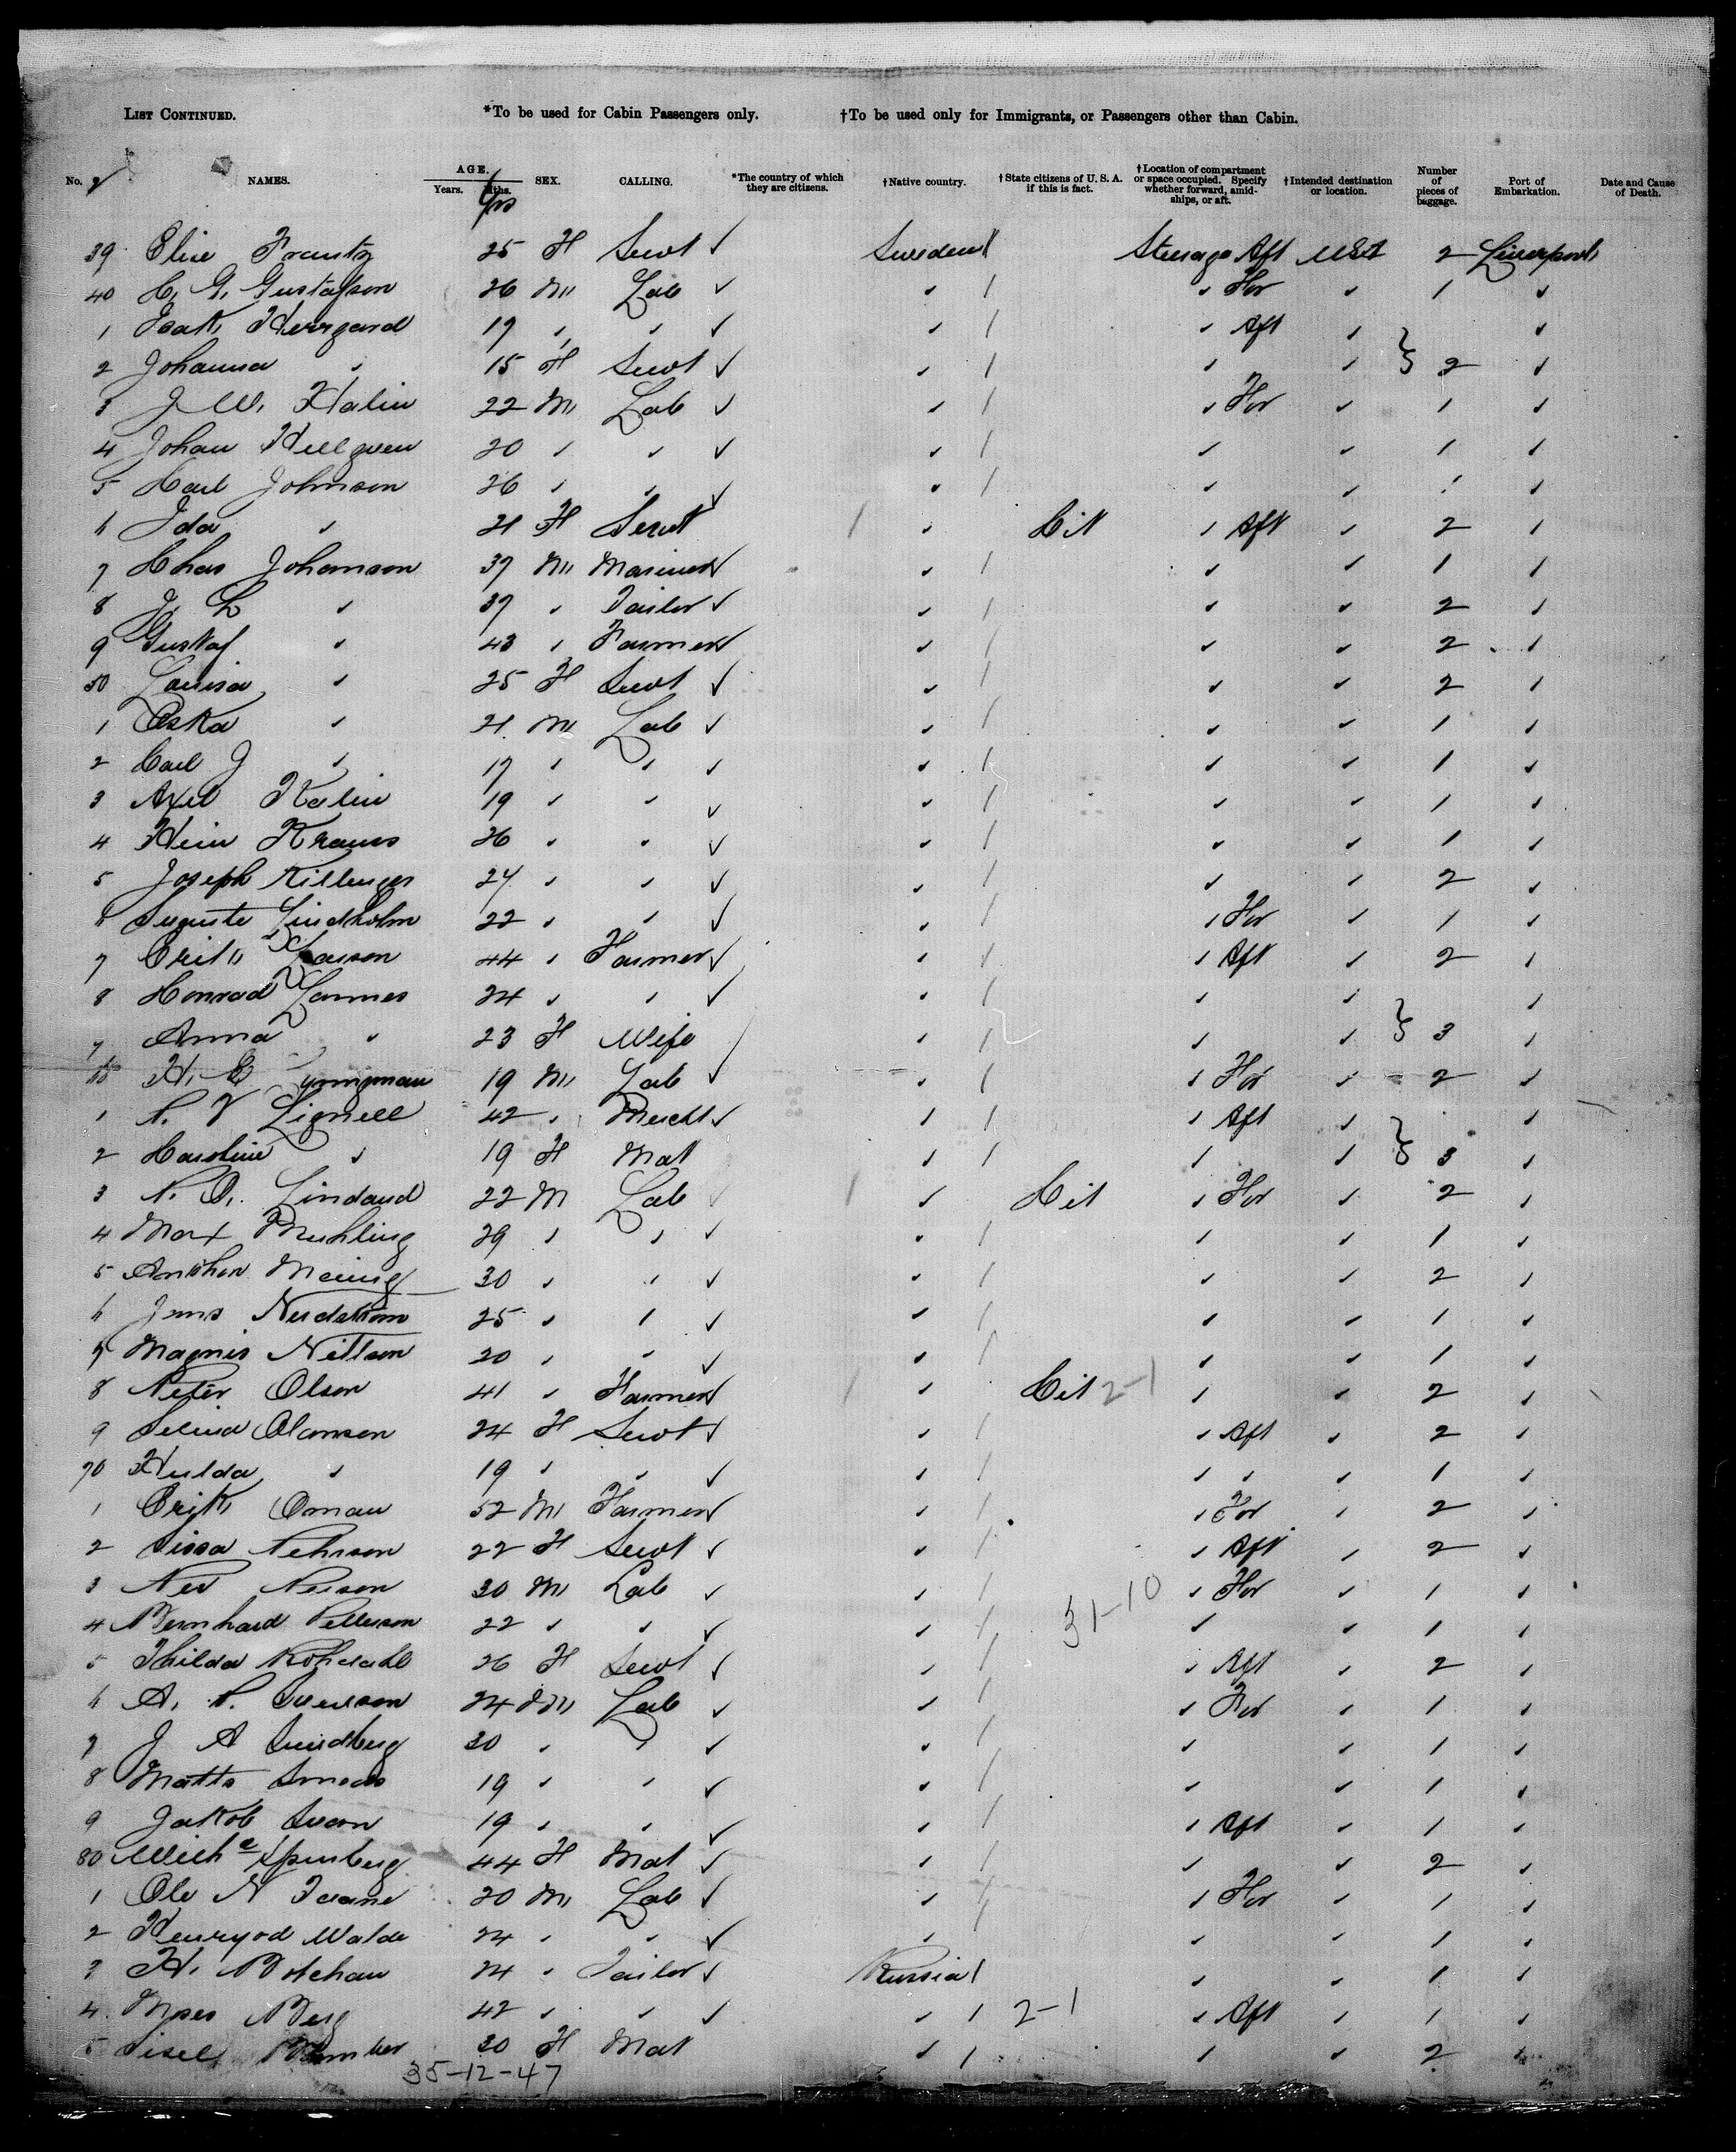 LIST CONTINUED. *To be used for Cabin Passengers only. †To be used only for Immigrants, or Passengers other than Cabin.
No. NAMES. AGE. Years. Mths. SEX. CALLING. *The country of which they are citizens. †Native country. †State citizens of U. S. A. if this is fact. †Location of compartment or space occupied. Specify whether forward, amidships, or aft. †Intended destination or location. Number of pieces of baggage. Port of Embarkation. Date and Cause of Death.
39 Elise Frantz 25 F Servt ✓ Sweden / Steerage Aft USA 2 Liverpool
40 C. G. Gustafson 26 M Lab ✓ / For 1
1 Isak Herrgard 19 ✓ / Aft
2 Johanna 15 F Servt ✓ / 2
3 J W. Halin 22 M Lab ✓ / For 1
4 Johan Hellgren 20 ✓ / 1
5 Karl Johnson 26 ✓ / 1
6 Ida 21 F Servt / Cit Aft 2
7 Chas Johanson 37 M Mariner ✓ / 1
8 J. L 37 Tailor ✓ / 2
9 Gustaf 43 Farmer ✓ / 2
50 Louisa 25 F Servt ✓ / 2
1 Oska 21 M Lab ✓ / 1
2 Carl J 17 ✓ / 1
3 Axel Kalin 19 ✓ / 1
4 Hein Kraus 26 ✓ / 1
5 Joseph Killenger 24 ✓ / 2
6 Auguste Lindholm 22 ✓ / For 1
7 Erik Larson 44 Farmer ✓ / Aft 2
8 Konrad Lannes 24 ✓ /
9 Anna 23 F Wife / 3
60 H. E Lyungman 19 M Lab ✓ / For 2
1 Lignell 42 Mercht ✓ / Aft
2 Karoline 19 F Mat / 3
3 N. O. Lindaud 22 M Lab / Cit For 2
4 Max Muhling 29 ✓ / 1
5 30 ✓ / 2
6 Jens Nordstrom 25 ✓ / 1
7 Magnis Nillson 20 ✓ / 1
8 Peter Olson 41 Farmer / Cit 2-1 2
9 Selina Olanson 24 F Servt ✓ / Aft 2
70 Hulda 19 ✓ / 1
1 Erik Oman 52 M Farmer ✓ / For 2
2 Sissa Pehrson 22 F Servt ✓ / Aft 2
3 30 M Lab ✓ / 31-10 For 1
4 Bernhard Petterson 22 ✓ / 1
5 Thilda 26 F Servt ✓ / Aft 2
6 A. P. Svenson 24 M Lab ✓ / For 1
7 J A Sundberg 30 ✓ / 1
8 Matts 19 ✓ / 1
9 Jakob Svan 19 ✓ / Aft 1
80 44 F Mat ✓ / 2
1 Ole N 20 M Lab ✓ / For 1
2 24 ✓ / 1
3 H. Botchan 24 Tailor ✓ Russia / 1
4 Moses Berg 42 ✓ / 2-1 Aft 1
5 Sisel 30 F Mat / 2
35-12-47